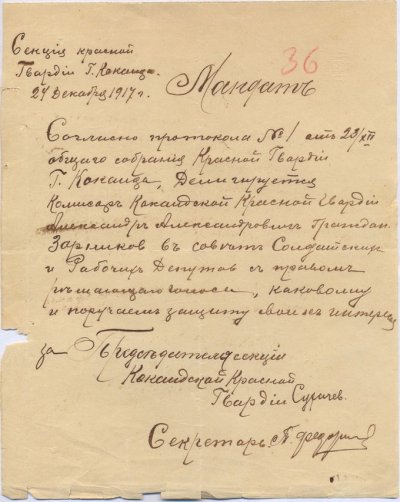 Секція красной
Гвардіи Г. Коканда.
24 Декабря 1917 г.
36
Мандатъ
Согласно протокола № 1 отъ 23/XII
общаго собранія Красной Гвардіи
Г. Коканда, Делигируется
Комисаръ Кокандской Красной Гвардіи
Александръ Александровичъ Граждан.
Зарников въ советъ Солдатских
и Рабочих Депутов съ правомъ
решающаго голоса, каковому
и поручаем защиту своих интерес
за Председателя секціи
Кокандской Красной
Гвардіи Сугачев.
Секретарь П.